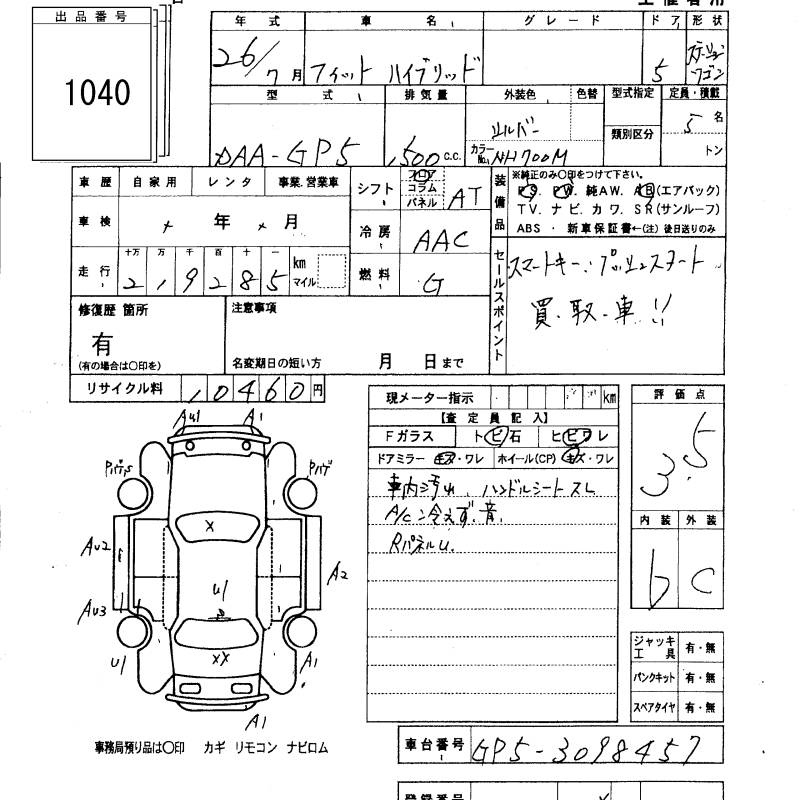 出品番号
1040
年式 車名 グレード ドア 形状
26/7月 フィット ハイブリッド 5 ステーションワゴン
型式 排気量 外装色 色替 型式指定 定員・積載
類別区分
DAA-GP5 1,500 c.c. シルバー 5名
カラーNo. NH700M トン
車歴 自家用 レンタ 事業.営業車
シフト フロア コラム パネル AT
車検 年 月
冷房 AAC
走行 十万 万 千 百 十 一 km マイル
2 1 9 2 8 5
燃料 G
装備品
※純正のみ〇印をつけて下さい。
PS. PW. 純AW. AB(エアバック)
TV. ナビ. カワ. SR(サンルーフ)
ABS ・ 新車保証書←(注) 後日送りのみ
セールスポイント
スマートキー・プッシュスタート
買・取・車!!
修復歴 箇所
有
(有の場合は〇印を)
注意事項
名変期日の短い方 月 日まで
リサイクル料 10460円
現メーター指示 km
【査定員記入】
Fガラス トビ石 ヒビワレ
ドアミラー キズ・ワレ ホイール(CP) キズ・ワレ
車内汚れ、ハンドルシートスレ
A/C冷えず.音.
RパネルU.
評価点
3.5
内装 外装
b C
AU1 A1
AU2 A2
AU3
U1 A1
X
U1
XX
A1
ジャッキ工具 有・無
パンクキット 有・無
スペアタイヤ 有・無
事務局預り品は〇印 カギ リモコン ナビロム
車台番号 GP5-3098457